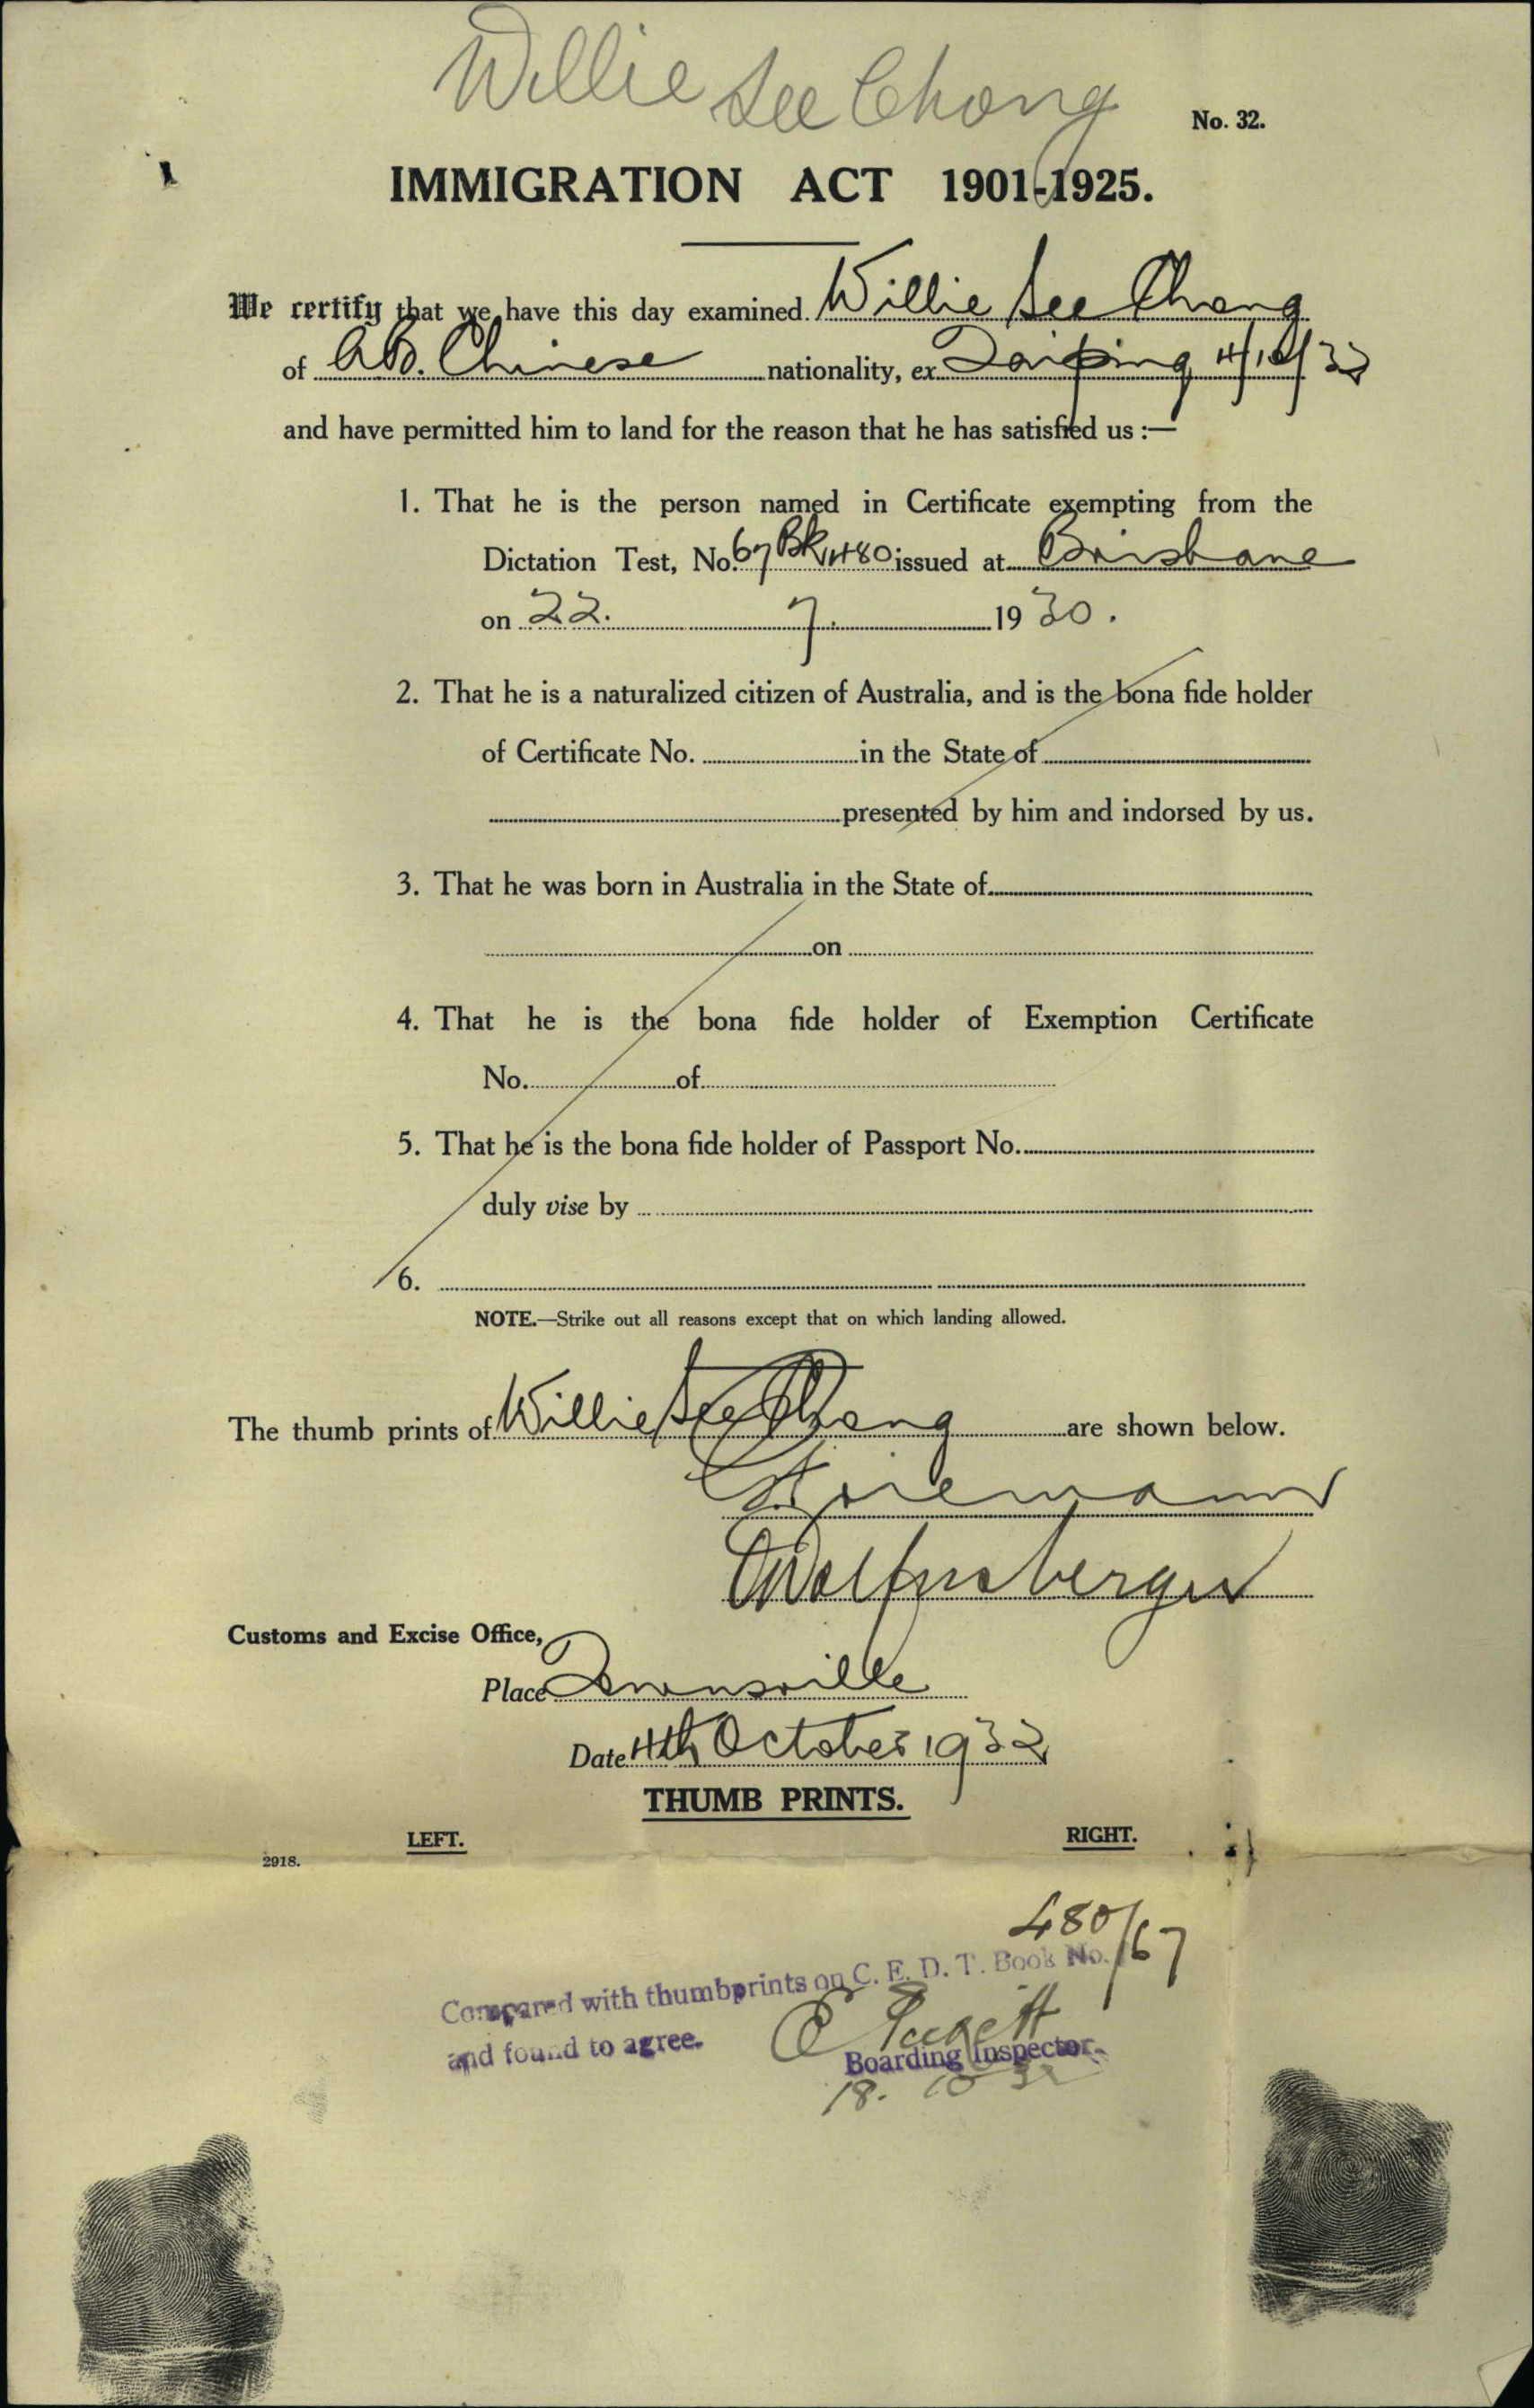 Willie See Chong
No. 32.
IMMIGRATION ACT 1901-1925.
We certify that we have this day examined Willie See Chong
of A.B. Chinese nationality, ex Taiping 4/10/32
and have permitted him to land for the reason that he has satisfied us :—
1. That he is the person named in Certificate exempting from the
Dictation Test, No. 67 Bk 480 issued at Brisbane
on 22. 7. 1930.
2. That he is a naturalized citizen of Australia, and is the bona fide holder
of Certificate No. in the State of
presented by him and indorsed by us.
3. That he was born in Australia in the State of
on
4. That he is the bona fide holder of Exemption Certificate
No. of
5. That he is the bona fide holder of Passport No.
duly vise by
6.
NOTE.—Strike out all reasons except that on which landing allowed.
The thumb prints of Willie See Chong are shown below.
Customs and Excise Office,
Place Townsville
Date 4th October 1932
THUMB PRINTS.
LEFT. RIGHT.
2918.
480/67
Compared with thumbprints on C. E. D. T. Book No.
and found to agree.
Boarding Inspector.
18. 10 32